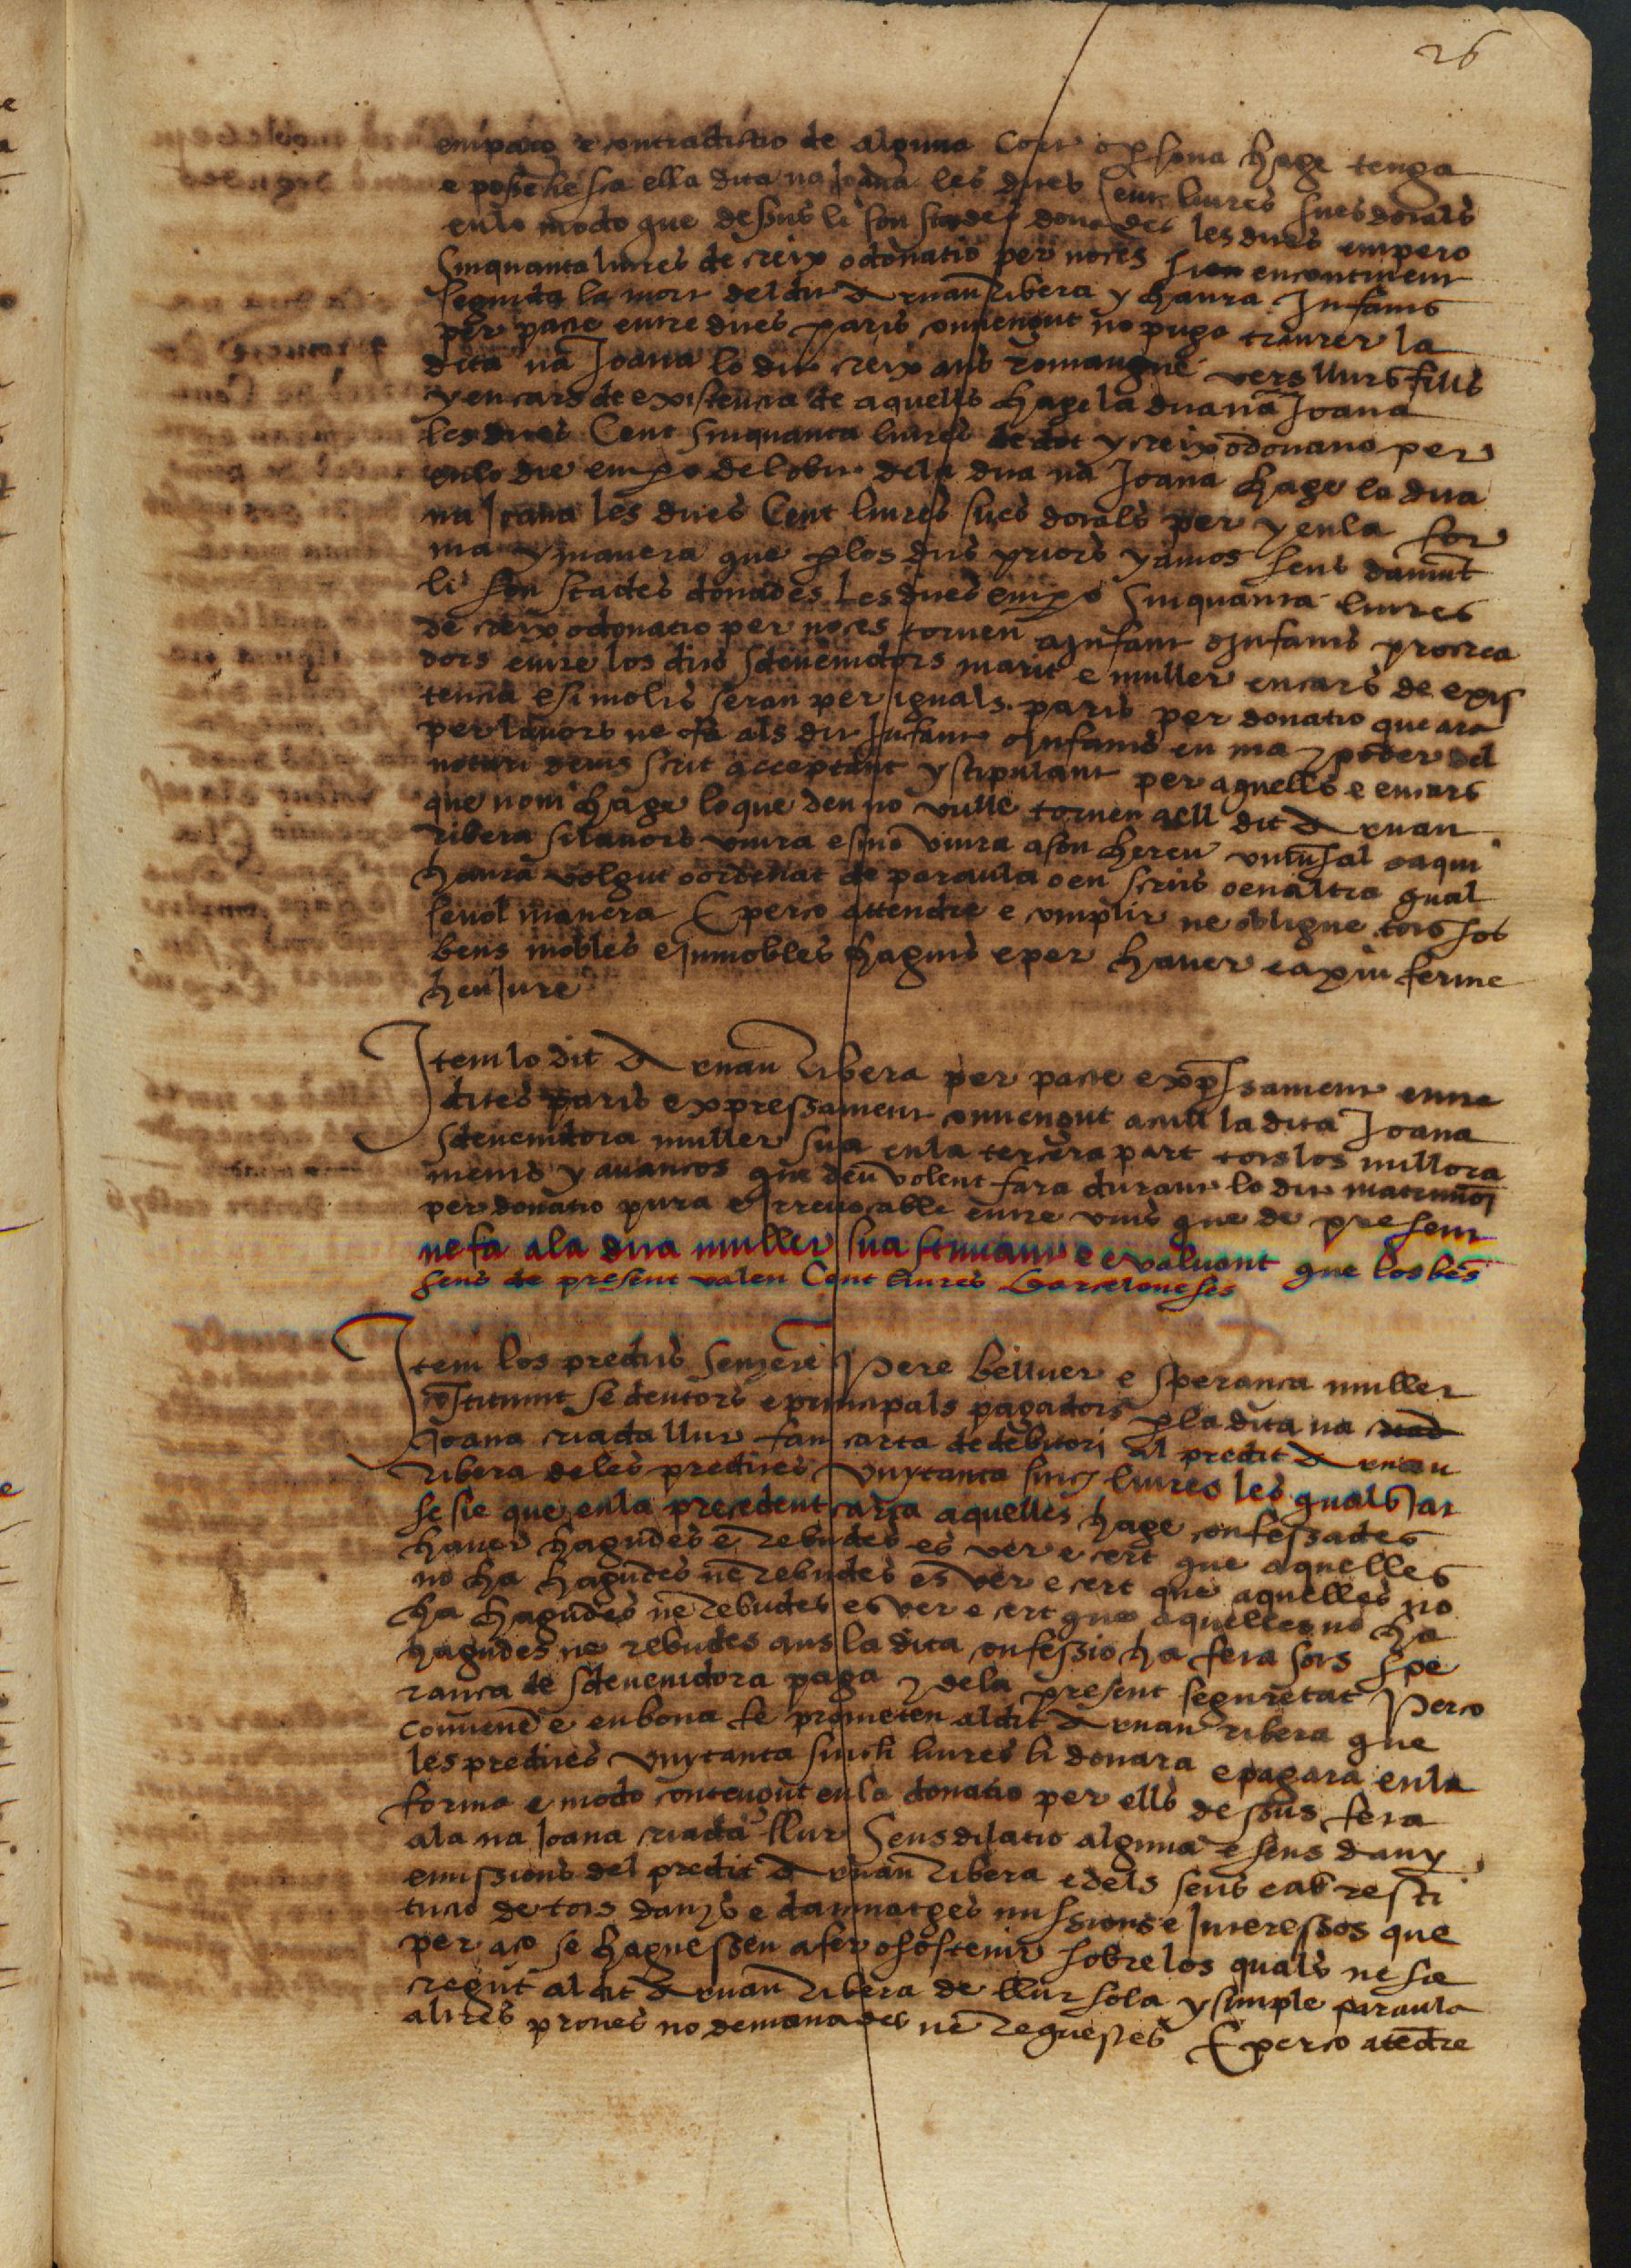 26
empaco e contradictio de alguna Cort o psona hage tenga
e posehesca ella dita na Joana les dites Cent liures sues dotals
en lo modo que dessus li son stades donades les dites empero
Sinquanta liures de creix o donatio per noces si en encontinent
seguida la mort del dit Arnau Ribera y haura Infants
per pacte entre dites parts convengut no puga traurer la
dita na Joana lo dit creix ans romangue vers llurs fills
y en cars de existencia de aquells hage la dita na Joana
les dites Cent Sinquanta liures de dot y creix o donatio per
en lo die empo del obit de la dita na Joana hage la dita
na Joana les dites Cent liures sues dotals per y en la for
ma y manera que p los dits priors y amos seus damunt
li son stades donades Les dites empo Sinquanta liures
de creix o donatio per noces tornen a Infant o Infants procrea
dors entre los dits sdevenidors marit e muller en cars de exis
tencia e si molts seran per iguals parts per donatio que ara
per lauors ne fa als dit Infant o Infants en ma y poder del
notari deius scrit acceptant y stipulant per aquells e en cars
que nom hage lo que deu no vulle tornen a ell dit Arnau
Ribera si lauors viura e si no viura a son hereu vniusal o a qui
haura volgut o ordenat de paraula o en scrits o en altra qual
seuol manera E perço attendre e complir ne obligue tots sos
bens mobles e Inmobles haguts e per hauer e axi u ferme
heu Jure
Item lo dit Arnau Ribera per pacte expsament entre
dites parts expressament convengut acull la dita Joana
sdevenidora muller sua en la tercera part tots los millora
ments y auanços que deu volent fara durant lo dit matrimoni
per donatio pura e Irreuocable entre vius que de present
ne fa a la dita muller sua stimant e evaluant que los bens
seus de present valen Cent liures Barceloneses
Item los predits Senyere Pere bellver e sperança muller
constituint se deutors e principals pagadors p la dita na
Joana criada llur fan carta de debitori al predit Arnau
Ribera de les predites vuytanta sinch liures les quals Jat
se sie que en la precedent carta aquelles hage confessades
hauer hagudes e Rebudes es ver e cert que aquelles
no ha hagudes ne Rebudes es ver e cert que aquelles no
ha hagudes ne Rebudes es ver e cert que aquelles no ha
hagudes ne rebudes ans la dita confessio ha feta sots spe
rança de sdevenidora paga y de la present seguretat Perço
convene e en bona fe prometen al dit Arnau ribera que
les predites vuytanta sinch liures li donara e pagara en la
forma e modo contengut en la donatio per ells dessus feta
a la na Joana criada llur Sens dilatio alguna e sens dany
e missions del predit Arnau Ribera e dels seus e ab resti
tucio de tots danys e damnatges missions e Interessos que
per aço se haguessen a fer o sostenir sobre los quals ne sie
cregut al dit Arnau Ribera de llur sola y simple paraula
altres proves no demanades ne Requestes E perço atedre